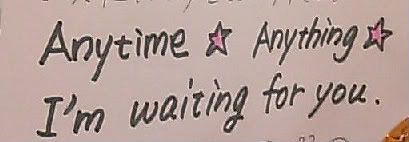 Anytime ☆ Anything ☆
I'm waiting for you.